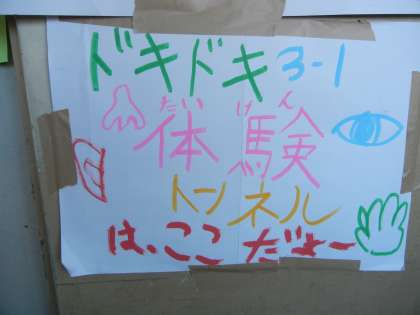 ドキドキ 3-1
たいけん
体験
トンネル
は、ここだよー